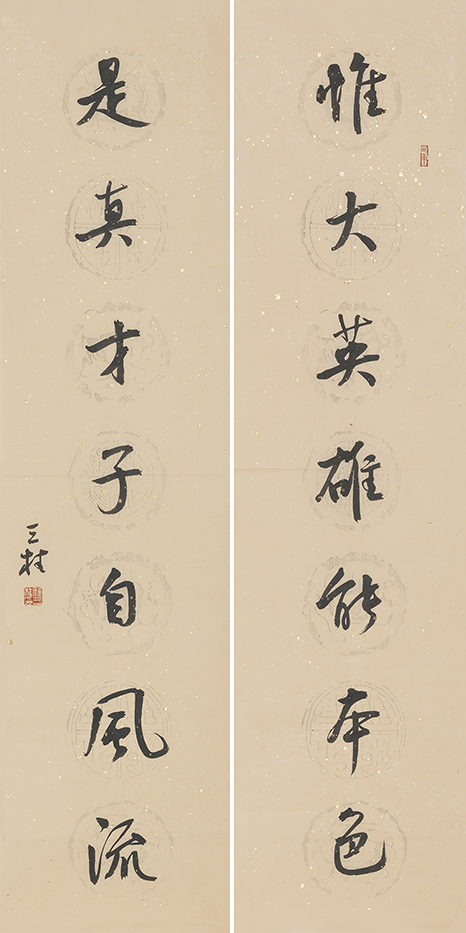 惟大英雄能本色
是真才子自風流
三桂